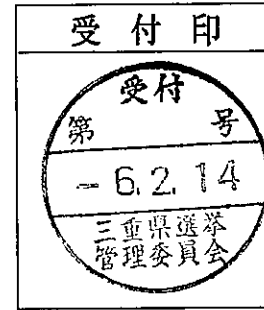 受付印
受付
第 号
- 6. 2. 14
三重県選挙
管理委員会